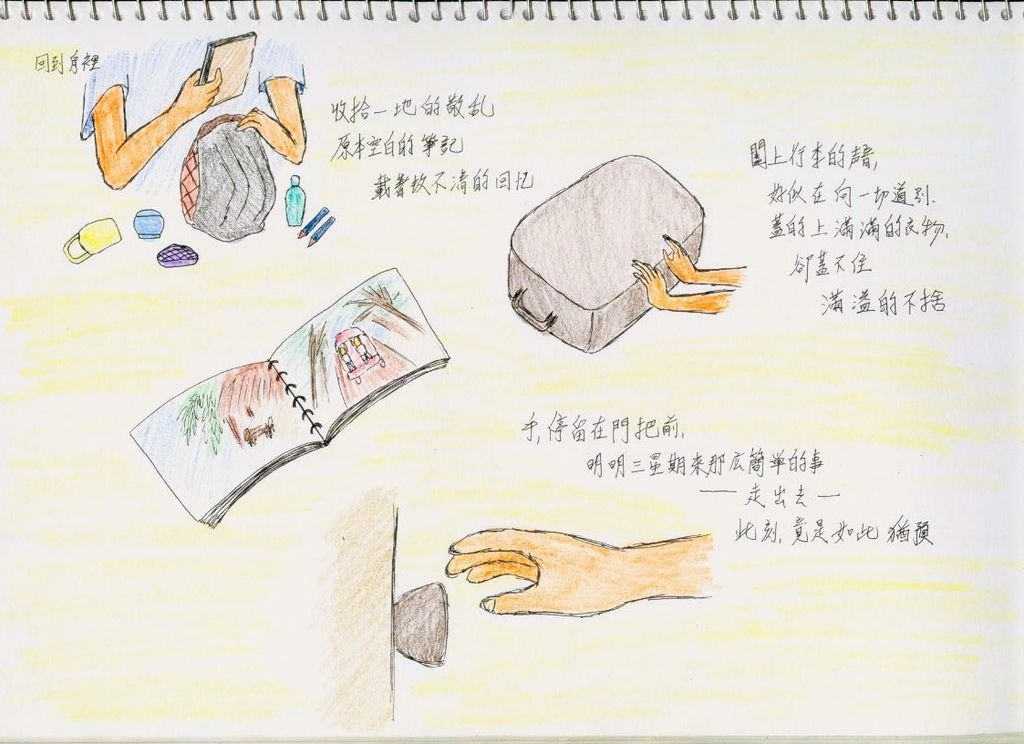 回到房裡
收拾一地的散乱
原本空白的筆記
載著数不清的回忆
闔上行李的聲音,
好似在向一切道別.
蓋的上滿滿的衣物,
卻蓋不住
滿溢的不捨
手,停留在門把前,
明明三星期來那底簡単的事
——走出去—
此刻,竟是如此猶預